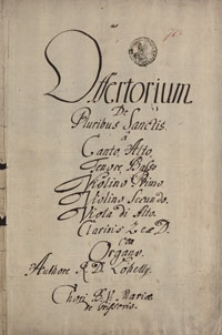 Offertorium.
De
Pluribus Sanctis.
à
Canto, Alto,
Tenore, Basso
Violino Primo
Violino Secundo.
Viola di Alto.
Clarinis 2 ex D.
Con
Organo.
Authore R. D. Lohelly.
Chori B. V. Mariæ
de